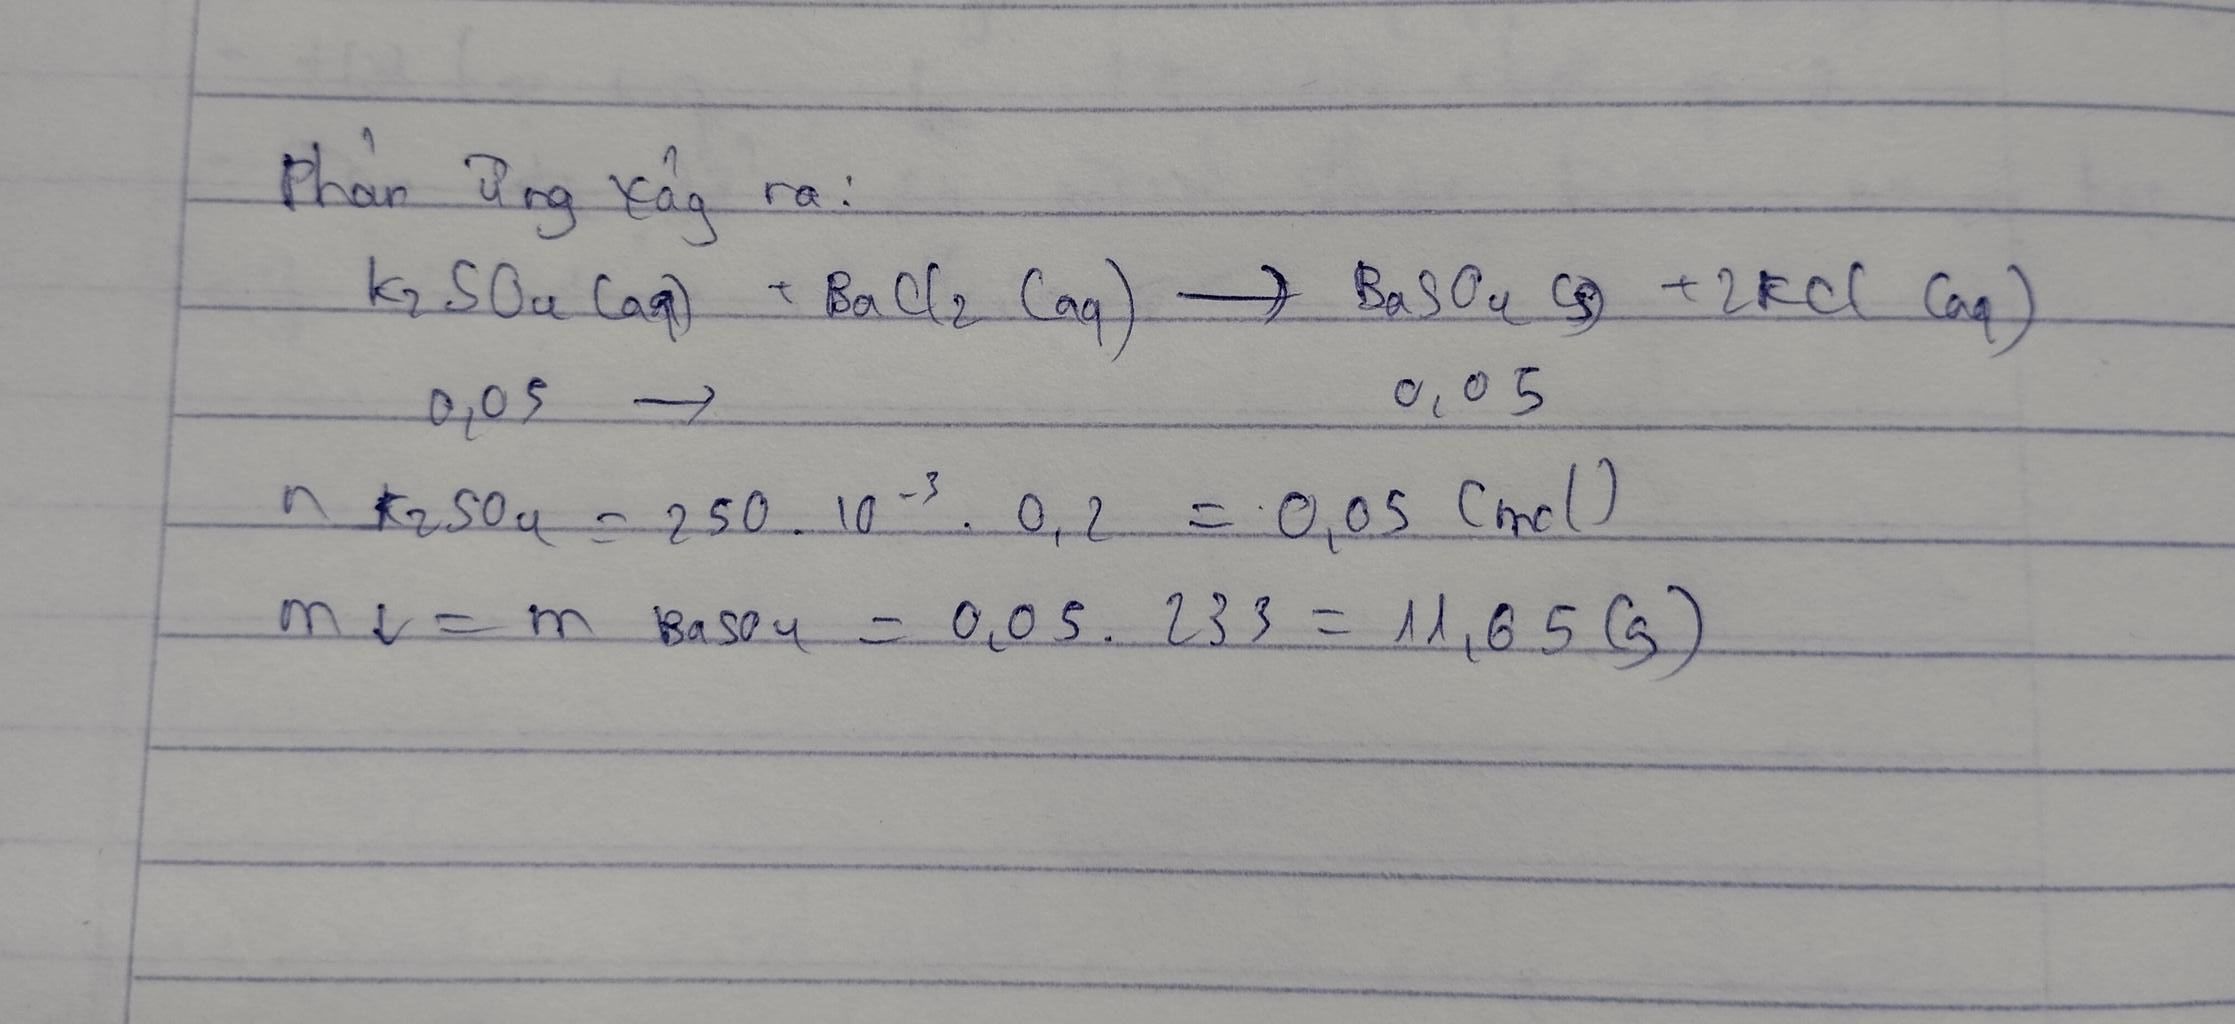 Phản ứng xảy ra:
K2SO4 (aq) + BaCl2 (aq) → BaSO4 (s) + 2KCl (aq)
0,05 → 0,05
n K2SO4 = 250 . 10⁻³ . 0,2 = 0,05 (mol)
m ↓ = m BaSO4 = 0,05 . 233 = 11,65 (g)